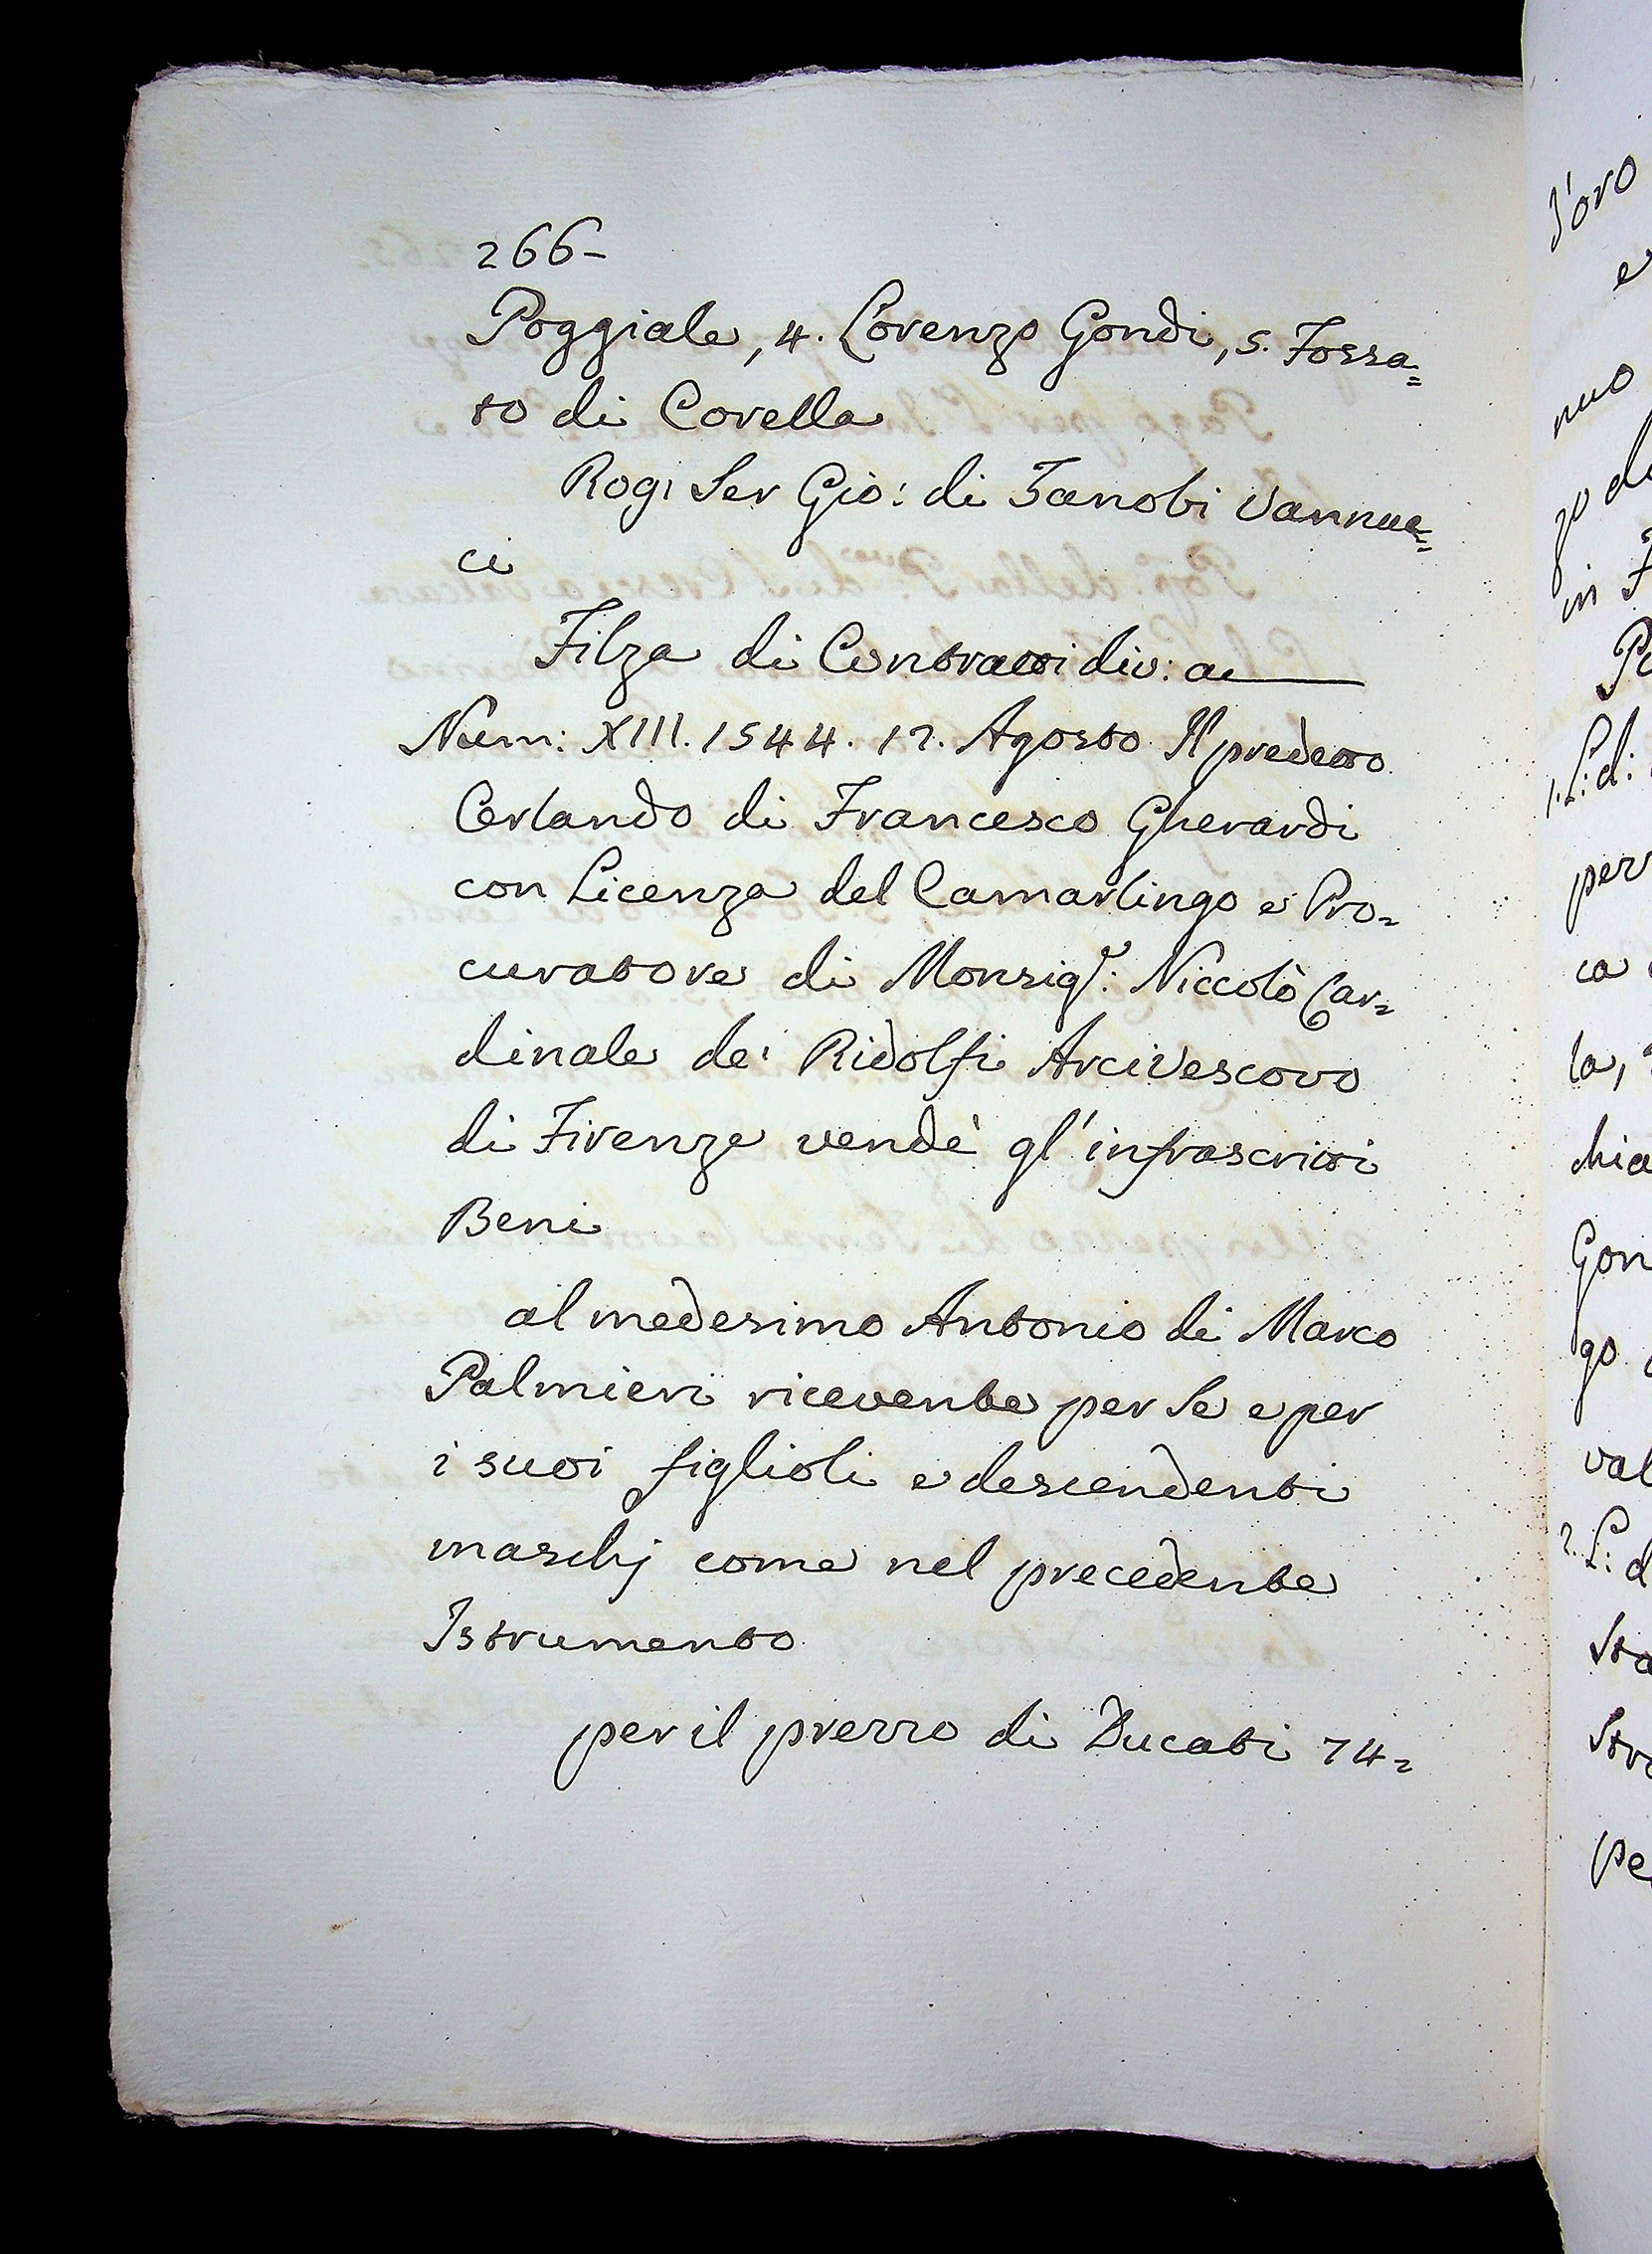 266-
Poggiale, 4. Lorenzo Gondi, 5. Fossa=
to di Corella
Rog: Ser Gio: di Zanobi Vannuc=
ci
Filza di Contratti div: a
Num: XIII. 1544. 17. Agosto Il predetto
Orlando di Francesco Gherardi
con Licenza del Camarlingo e Pro=
curatore di Monsigr: Niccolò Car=
dinale de' Ridolfi Arcivescovo
di Firenze vendè gl'infrascritti
Beni
al medesimo Antonio di Marco
Palmieri ricevente per se e per
i suoi figlioli e descendenti
maschj come nel precedente
Istrumento
per il prezzo di Ducati 74=
d'oro
e
nuo
zo de
in
1. L: d:
per
ca
la,
chia
Gon
go
val
2. L: d
Sta
Stra
pe